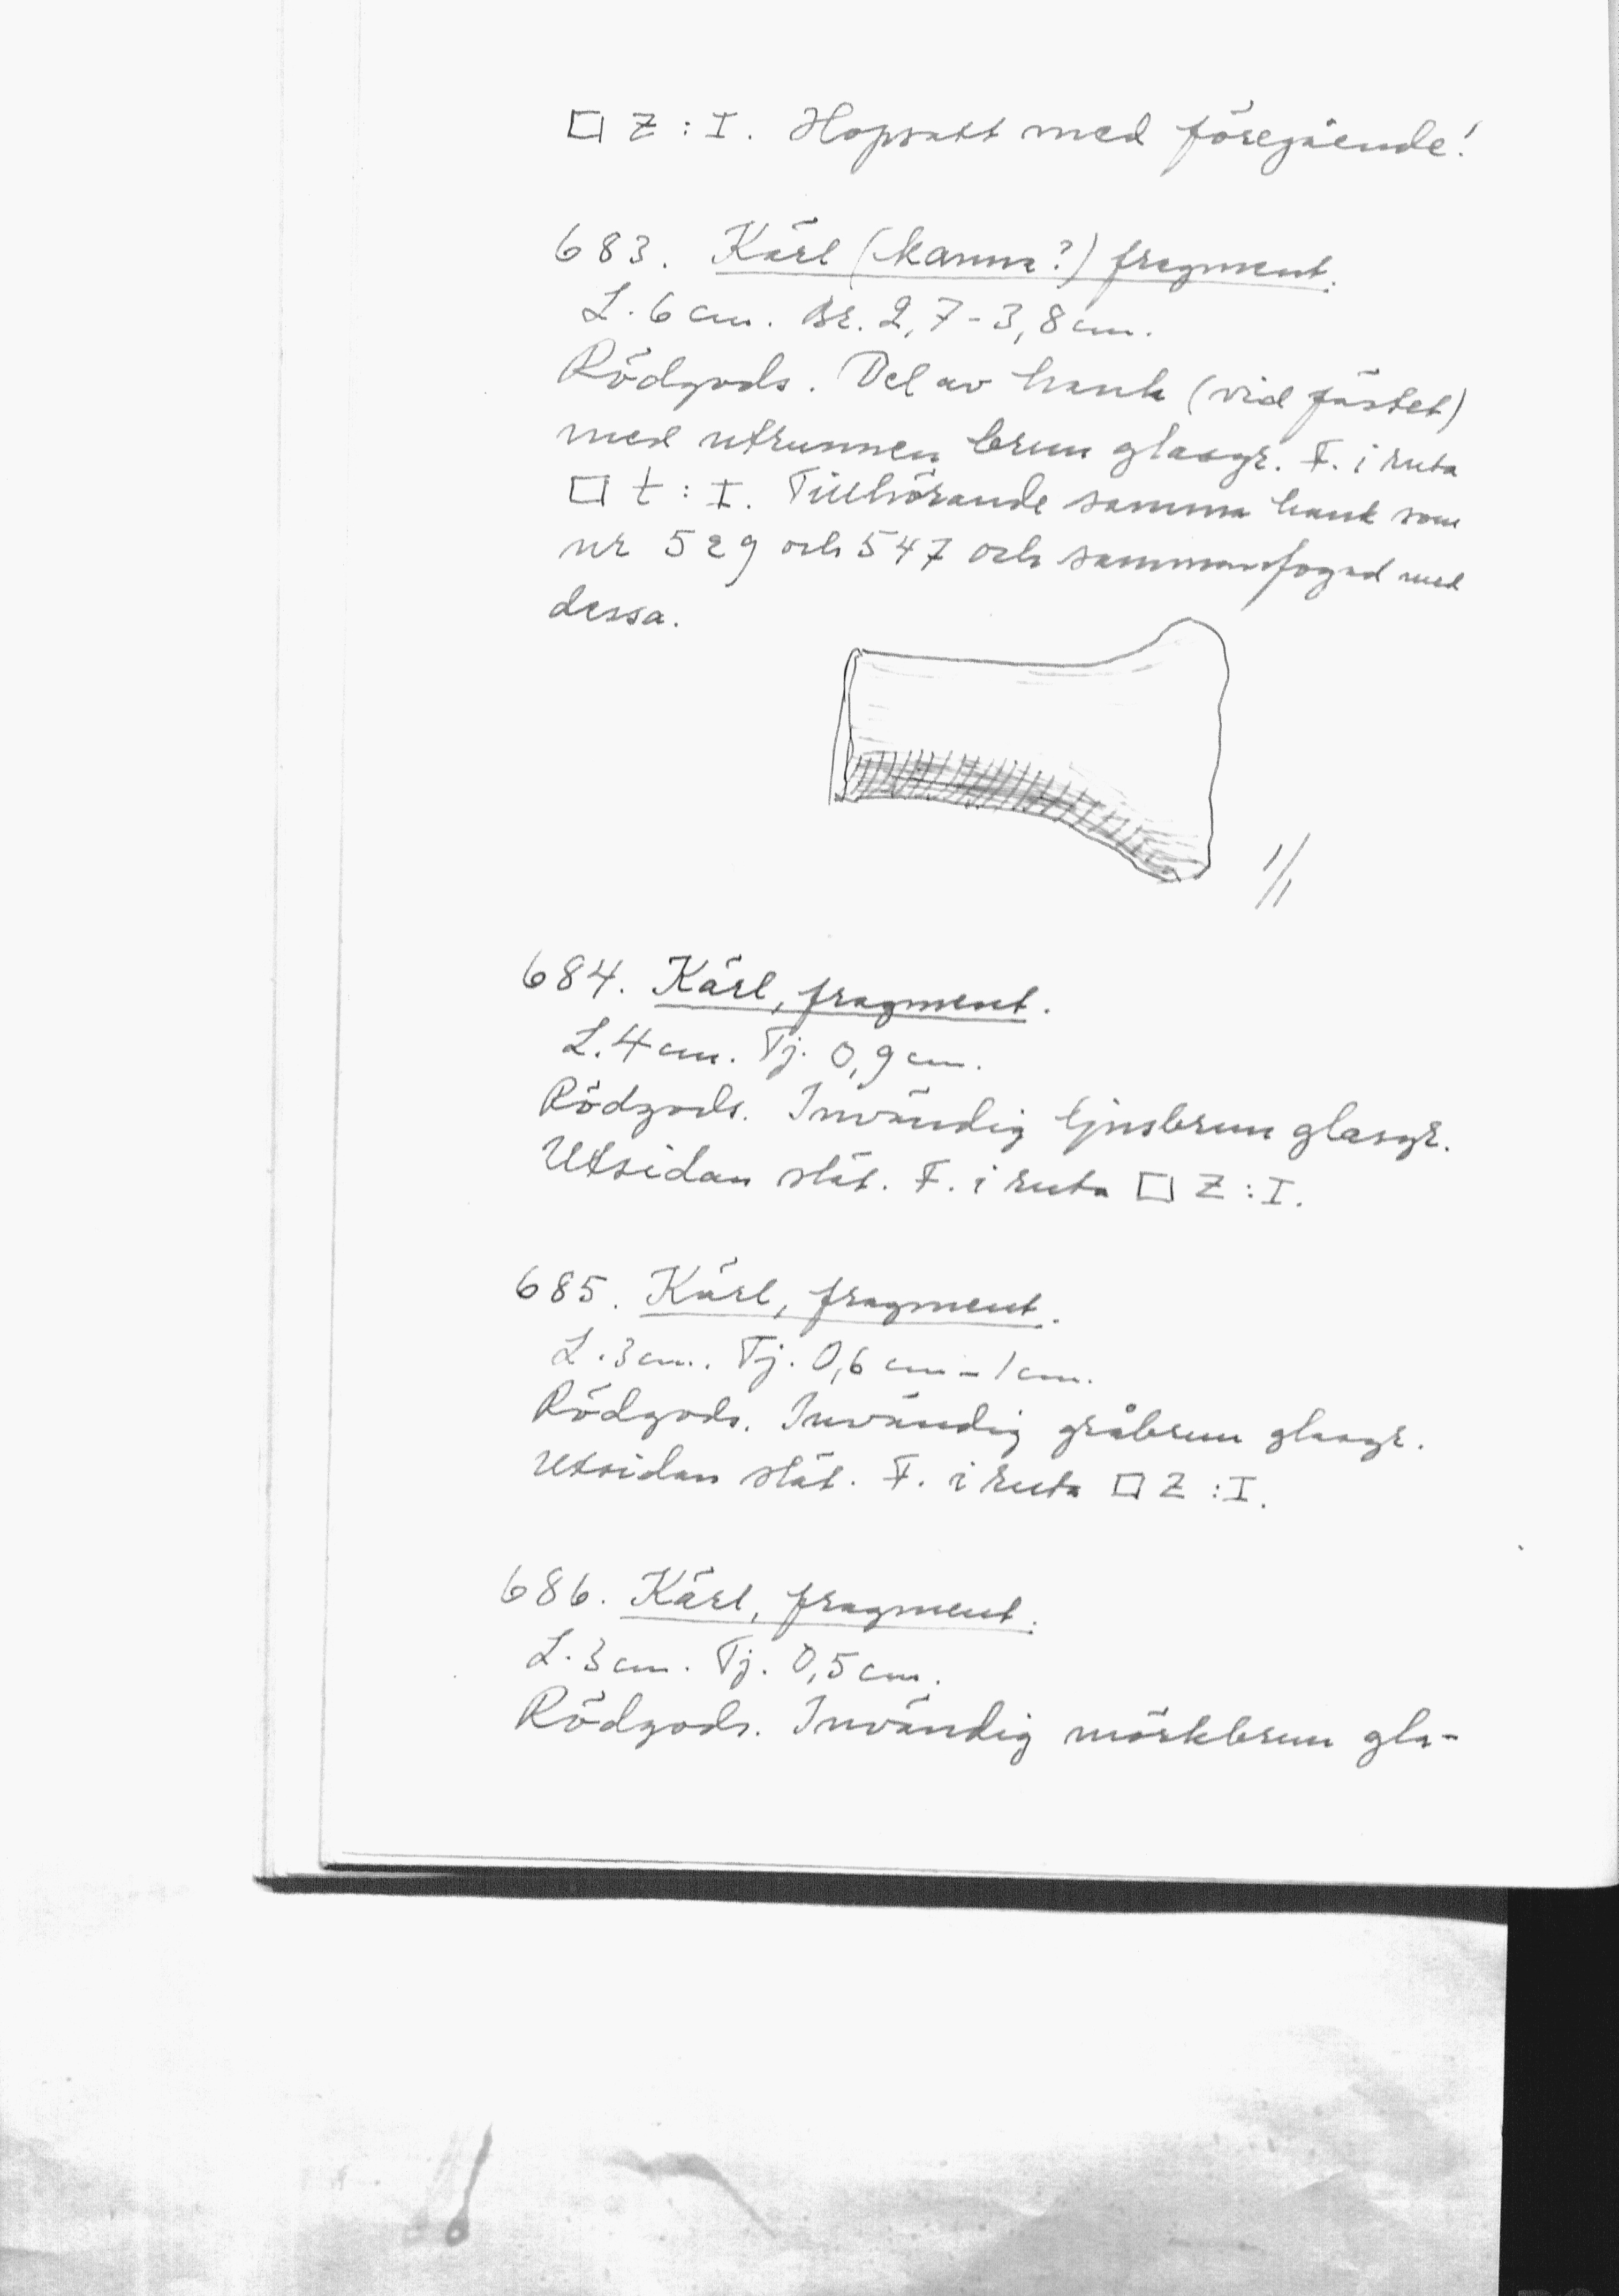 □ Z : I. Hopsatt med föregående!
683. Kärl (kanna?) fragment.
L. 6 cm. Br. 2,7-3,8 cm.
Rödgods. Del av hank (vid fästet)
med utrunnen brun glasyr. F. i ruta
□ t : I. Tillhörande samma hank som
nr 529 och 547 och sammanfogad med
dessa.
1/1
684. Kärl, fragment.
L. 4 cm. Tj. 0,9 cm.
Rödgods. Invändig ljusbrun glasyr.
Utsidan slät. F. i ruta □ Z : I.
685. Kärl, fragment.
L. 3 cm. Tj. 0,6 cm - 1 cm.
Rödgods. Invändig gråbrun glasyr.
Utsidan slät. F. i ruta □ Z : I.
686. Kärl, fragment.
L. 3 cm. Tj. 0,5 cm.
Rödgods. Invändig mörkbrun gla-